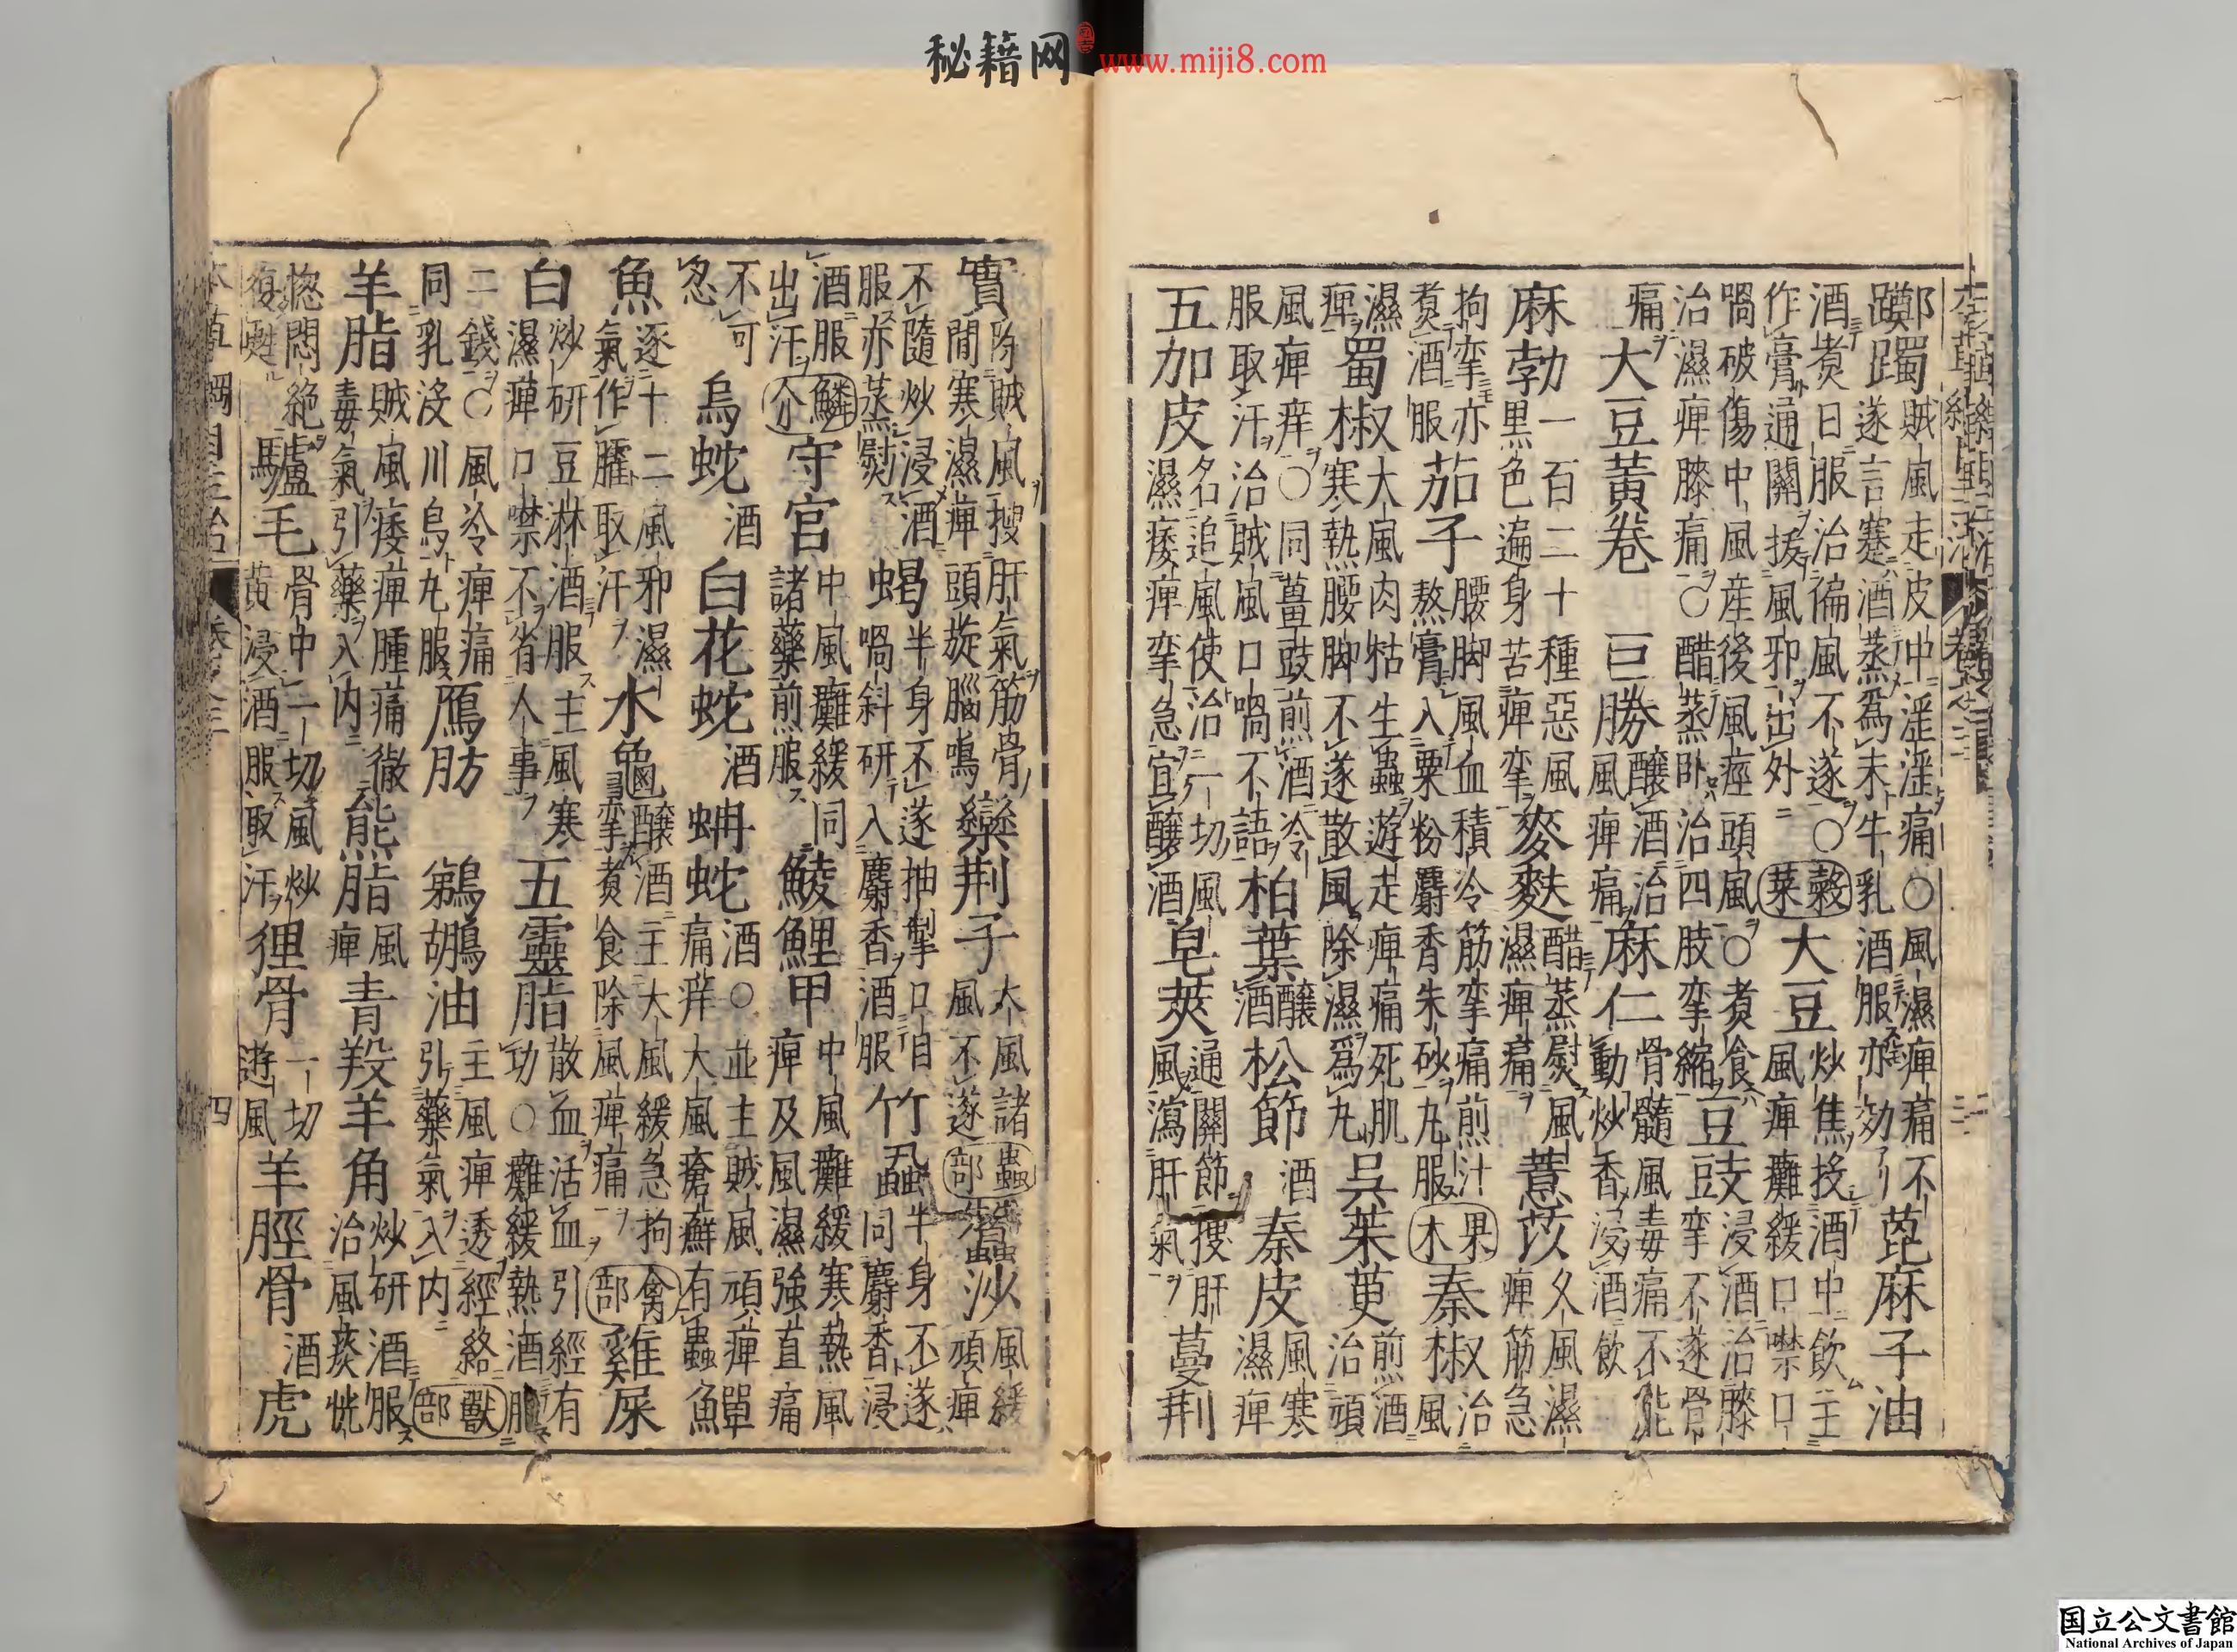 躑躅賊風走皮中淫淫痛○風濕痺痛不遂言蹇酒蒸爲末牛乳酒服亦効蓖麻子油
酒煑日服治偏風不遂○作膏通關拔風邪出外穀菜大豆炒焦投酒中飲主風痺癱緩口噤口
喎破傷中風産後風痙頭風○煑食治濕痺膝痛○醋蒸卧治四肢攣縮豆豉浸酒治膝攣不遂骨
痛大豆黃卷巨勝釀酒治風痺痛麻仁骨髓風毒痛不能動炒香浸酒飲
麻勃一百二十種惡風黑色遍身苦痺攣麥麩醋蒸熨風濕痺痛薏苡久風濕痺筋急
拘攣亦煑酒服茄子腰脚風血積冷筋攣痛煎汁熬膏入粟粉麝香朱砂丸服果木秦椒治風
濕痺蜀椒大風肉枯生蟲遊走痺痛死肌寒熱腰脚不遂散風除濕爲丸吳茱萸煎酒治頑
風痺痒○同薑豉煎酒冷服取汗治賊風口喎不語柏葉釀酒松節酒秦皮風寒濕痺
五加皮名追風使治一切風濕痿痺攣急宜釀酒皂莢通關節搜肝風瀉肝氣蔓荊
實除賊風搜肝氣筋骨間寒濕痺頭旋腦鳴欒荊子大風諸風不遂蟲部蠶沙風緩頑痺
不隨炒浸酒服亦蒸熨蝎半身不遂抽掣口目喎斜研入麝香酒服竹蝨半身不遂同麝香浸
酒服出汗鱗介守宮中風癱緩同諸藥煎服鯪鯉甲中風癱緩寒熱風痺及風濕強直痛
不可忽烏蛇酒白花蛇酒蚺蛇酒○並主賊風頑痺痛痒大風瘡癬有蟲鱓魚
魚逐十二風邪濕氣作臛取汗水龜釀酒主大風緩急拘攣煑食除風痺痛禽部雞屎
白炒研豆淋酒服主風寒濕痺口噤不省人事五靈脂散血活血引經有功○癱緩熱酒服
二錢○風冷痺痛同乳沒川烏丸服鴈肪鵜鶘油主風痺透經絡引藥氣入内獸部
羊脂賊風痿痺腫痛徹毒氣引藥入内熊脂風痺青羖羊角炒研酒服治風痰恍
惚悶絶復甦驢毛骨中一切風炒黃浸酒服取汗狸骨一切遊風羊脛骨酒虎
本草綱目主治 四
秘籍网 www.miji8.com
国立公文書館
National Archives of Japan